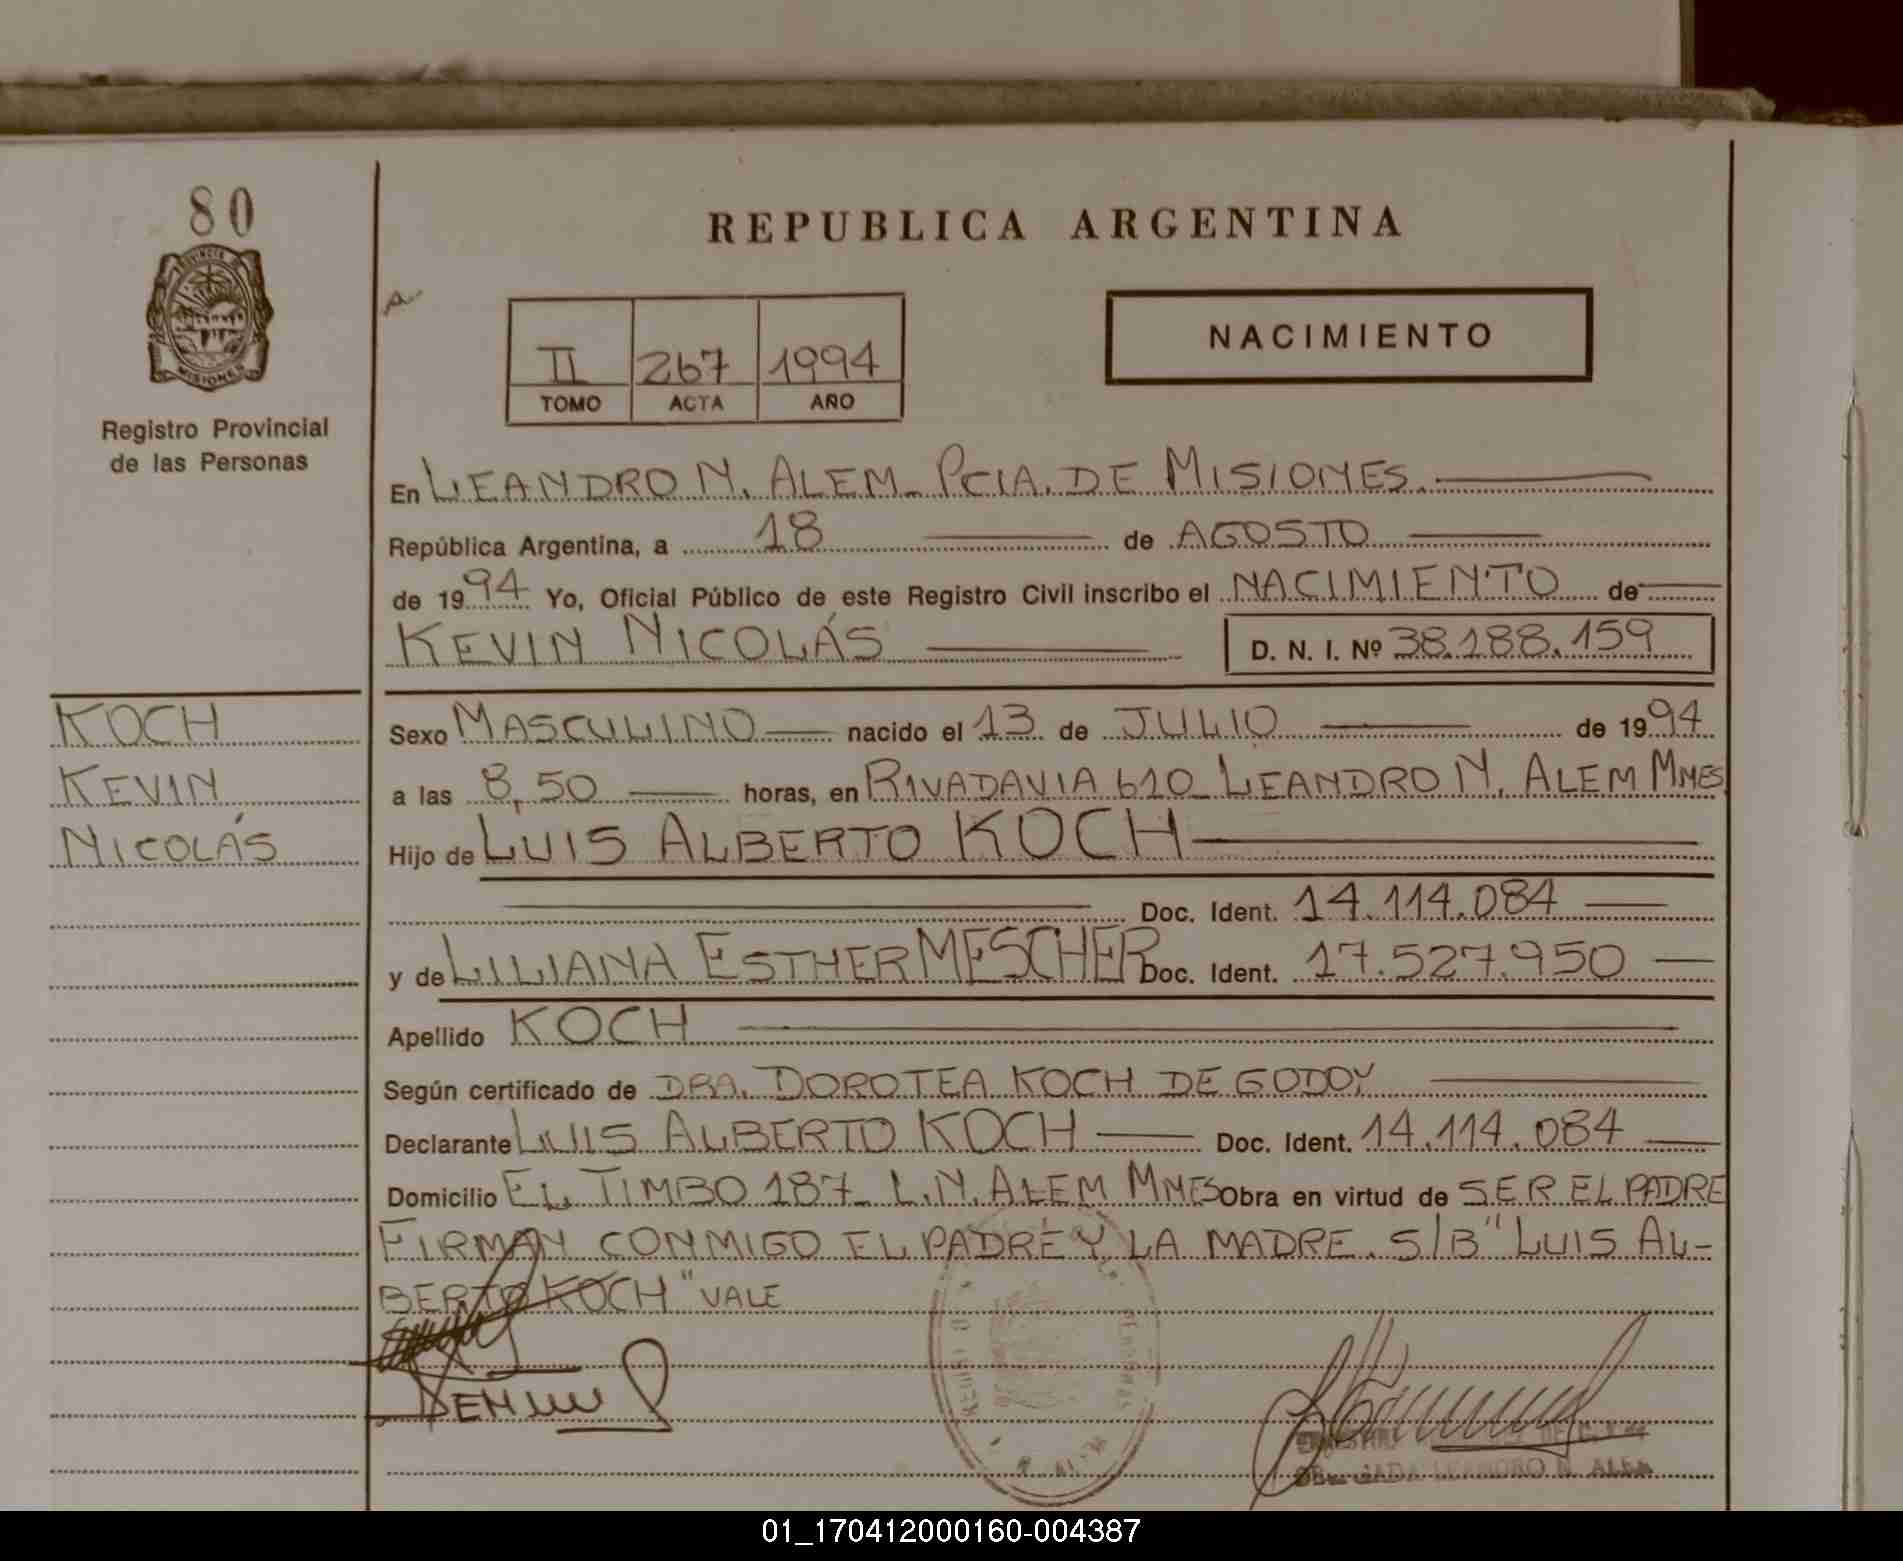 80
PROVINCIA DE
MISIONES
Registro Provincial
de las Personas
REPUBLICA ARGENTINA
NACIMIENTO
II 267 1994
TOMO ACTA AÑO
En LEANDRO N. ALEM_ PCIA. DE MISIONES.
República Argentina, a 18 de AGOSTO
de 1994 Yo, Oficial Público de este Registro Civil inscribo el NACIMIENTO de
KEVIN NICOLÁS D. N. I. Nº 38.188.159
KOCH
KEVIN
NICOLÁS
Sexo MASCULINO nacido el 13 de JULIO de 1994
a las 8,50 horas, en RIVADAVIA 610_ LEANDRO N. ALEM MNES
Hijo de LUIS ALBERTO KOCH
Doc. Ident. 14.114.084
y de LILIANA ESTHER MESCHER Doc. Ident. 17.527.950
Apellido KOCH
Según certificado de DRA. DOROTEA KOCH DE GODOY
Declarante LUIS ALBERTO KOCH Doc. Ident. 14.114.084
Domicilio EL TIMBO 187_ L.N. ALEM MNES Obra en virtud de SER EL PADRE
FIRMAN CONMIGO EL PADRE Y LA MADRE. S/B "LUIS AL-
BERTO KOCH" VALE
LEANDRO N. ALEM
01_170412000160-004387